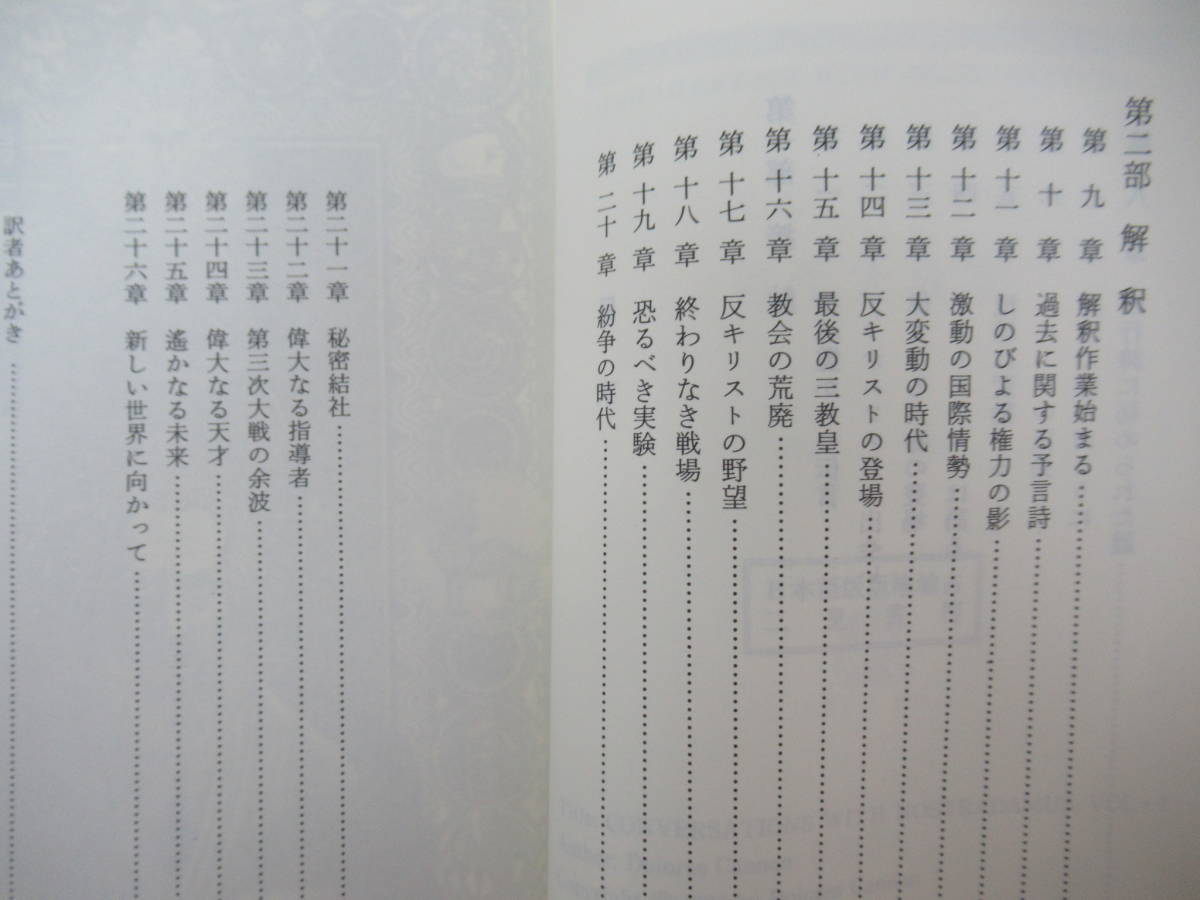 第二部 解釈
第九章 解釈作業始まる……
第十章 過去に関する予言詩……
第十一章 しのびよる権力の影……
第十二章 激動の国際情勢……
第十三章 大変動の時代……
第十四章 反キリストの登場……
第十五章 最後の三教皇……
第十六章 教会の荒廃……
第十七章 反キリストの野望……
第十八章 終わりなき戦場……
第十九章 恐るべき実験……
第二十章 紛争の時代……
第二十一章 秘密結社……
第二十二章 偉大なる指導者……
第二十三章 第三次大戦の余波……
第二十四章 偉大なる天才……
第二十五章 遙かなる未来……
第二十六章 新しい世界に向かって……
訳者あとがき……
Title: CONVERSATIONS WITH NOSTRADAMUS VOL・
Author: Dolores Cannon